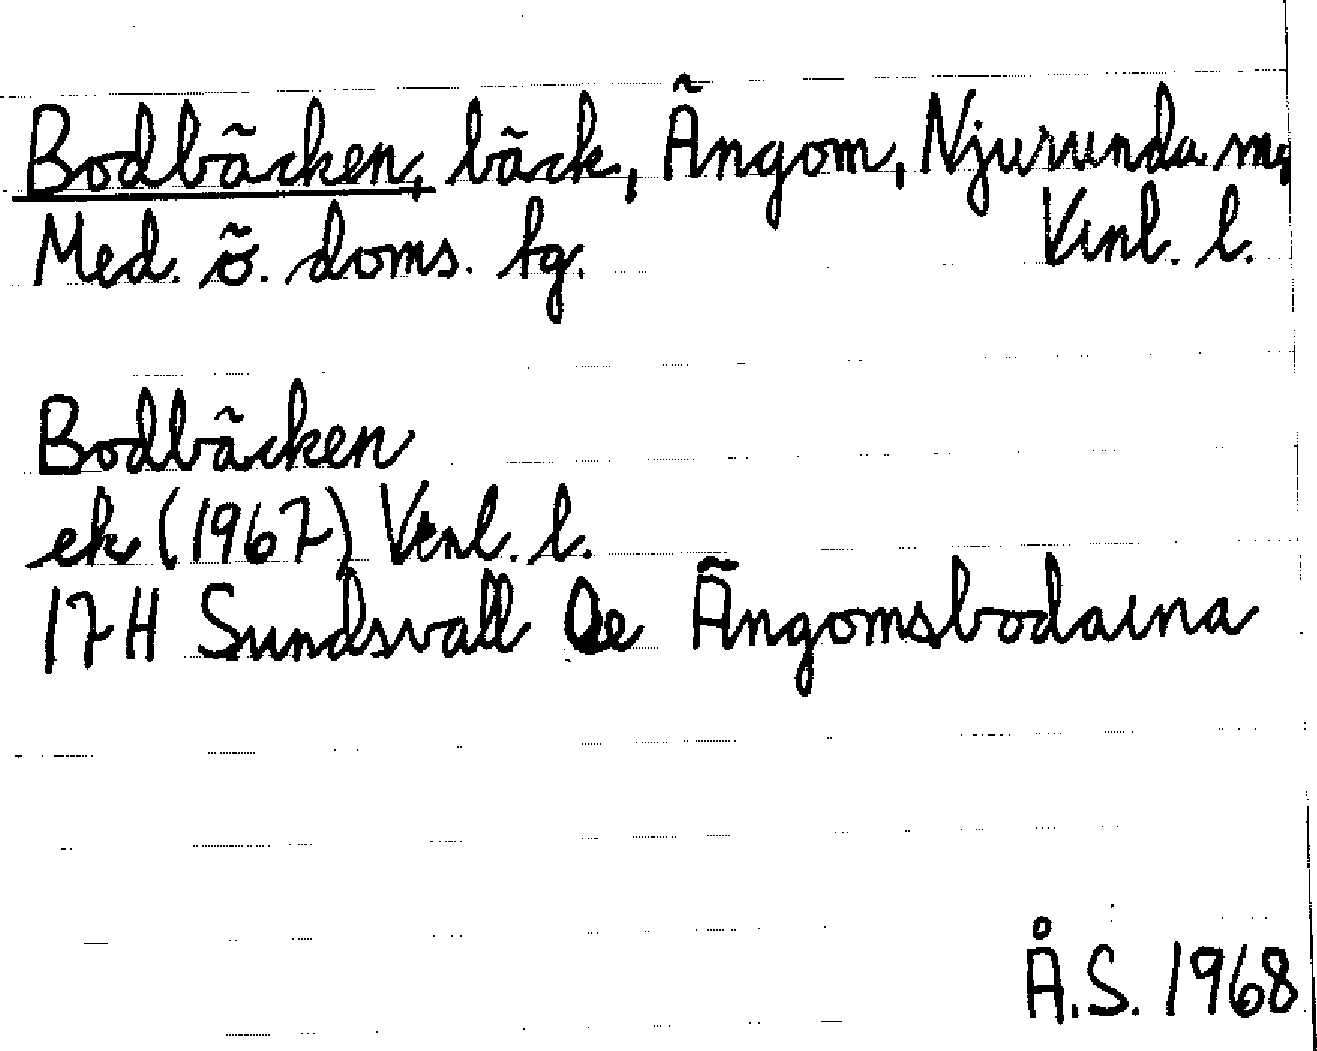 Bodbäcken, bäck, Ängom, Njurunda
Med. ö. doms. tg. Vnl. l.
Bodbäcken
ek (1967) Vnl. l.
17H Sundsvall Ängomsbodarna
Å.S. 1968